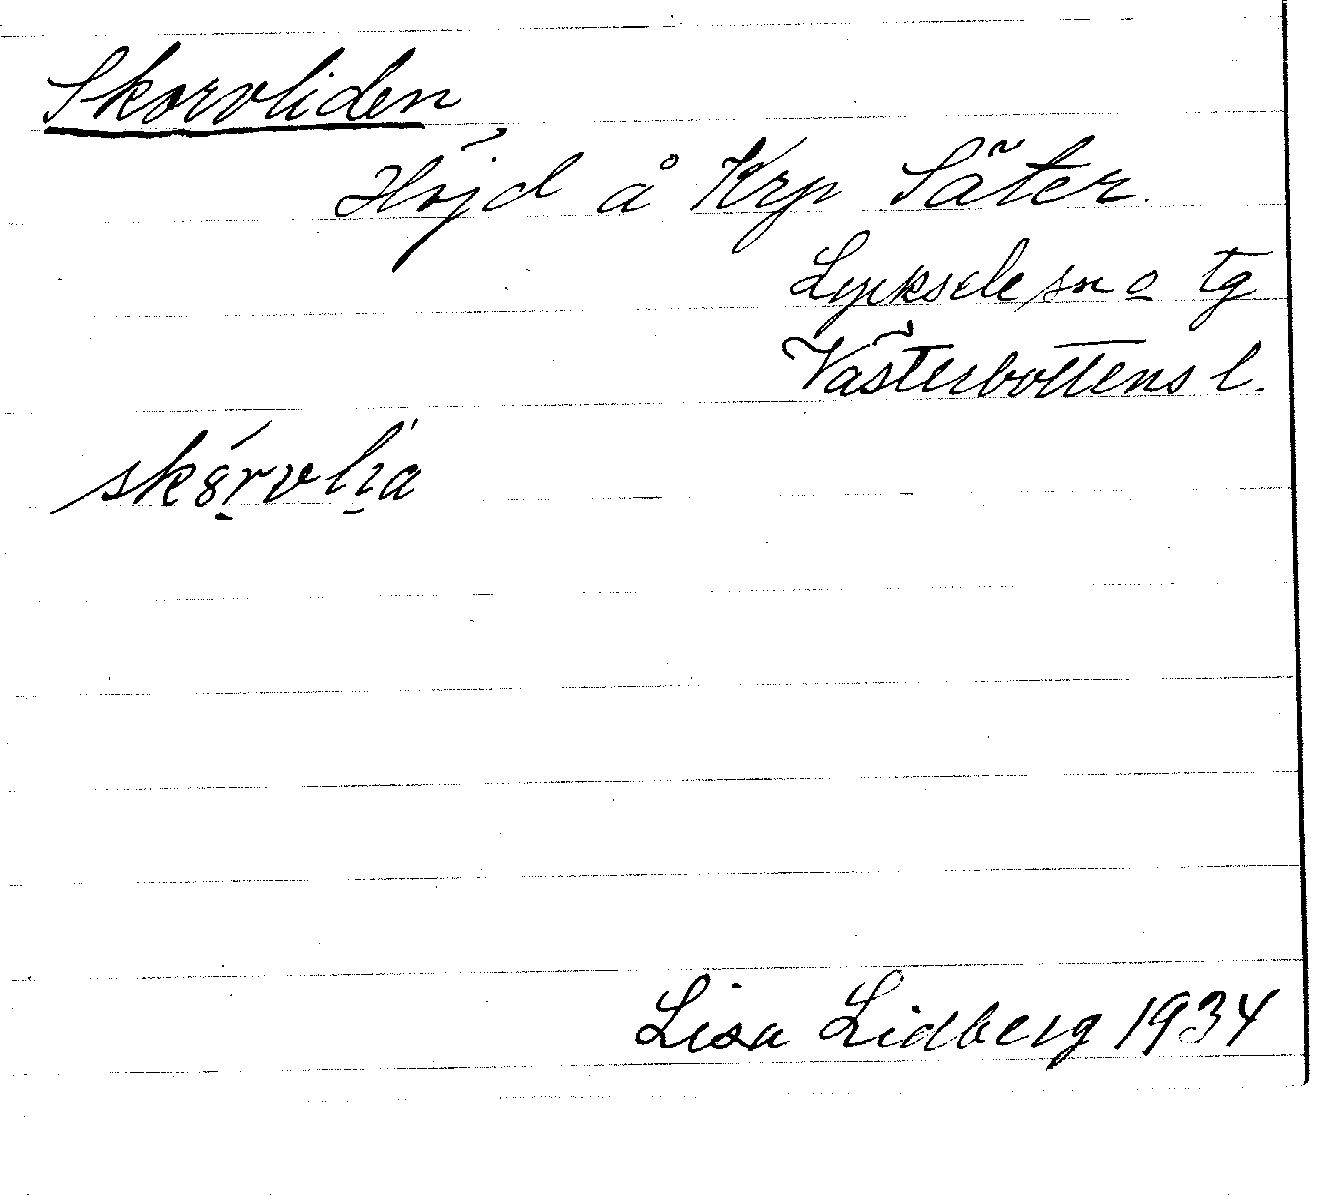 Skorvliden
Höjd å Krp Säter.
Lycksele sn o tg
Västerbottens l.
Lisa Lidberg 1934